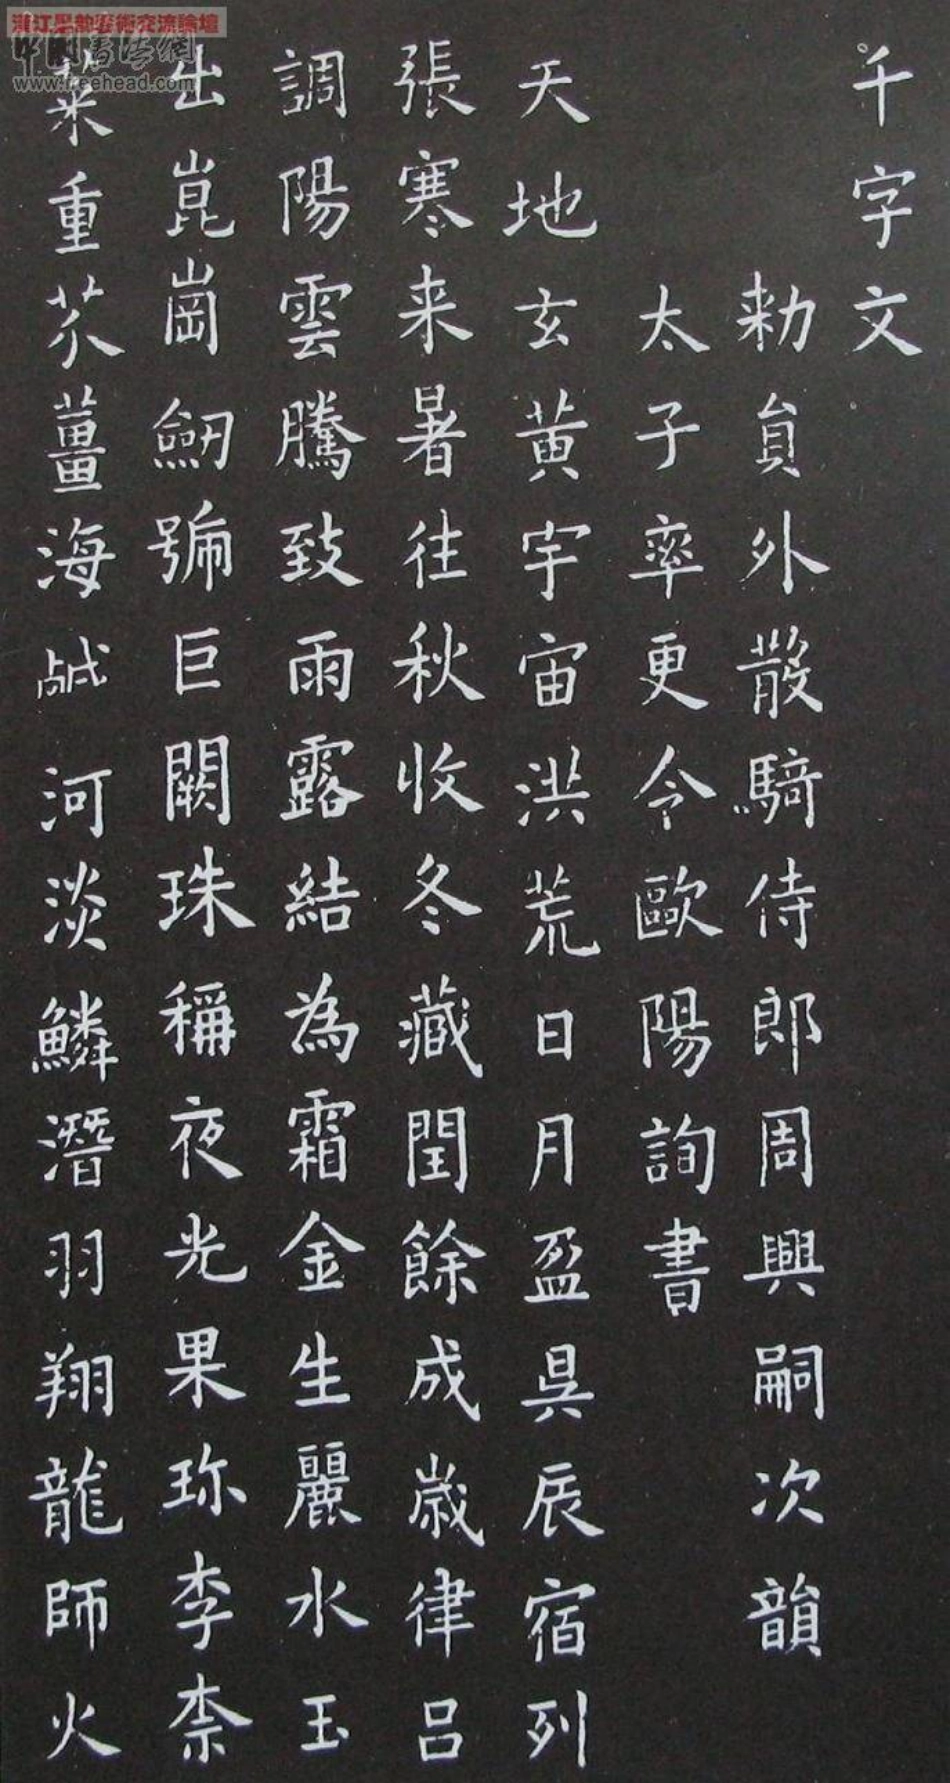 千字文
勑貟外散騎侍郎周興嗣次韻
太子率更令歐陽詢書
天地玄黃宇宙洪荒日月盈昃辰宿列
張寒来暑往秋收冬藏閏餘成歲律呂
調陽雲騰致雨露結為霜金生麗水玉
出崑崗劒號巨闕珠稱夜光果珎李柰
菜重芥薑海鹹河淡鱗潛羽翔龍師火
漢江墨韵藝術交流論壇
中國書法網
www.freehead.com